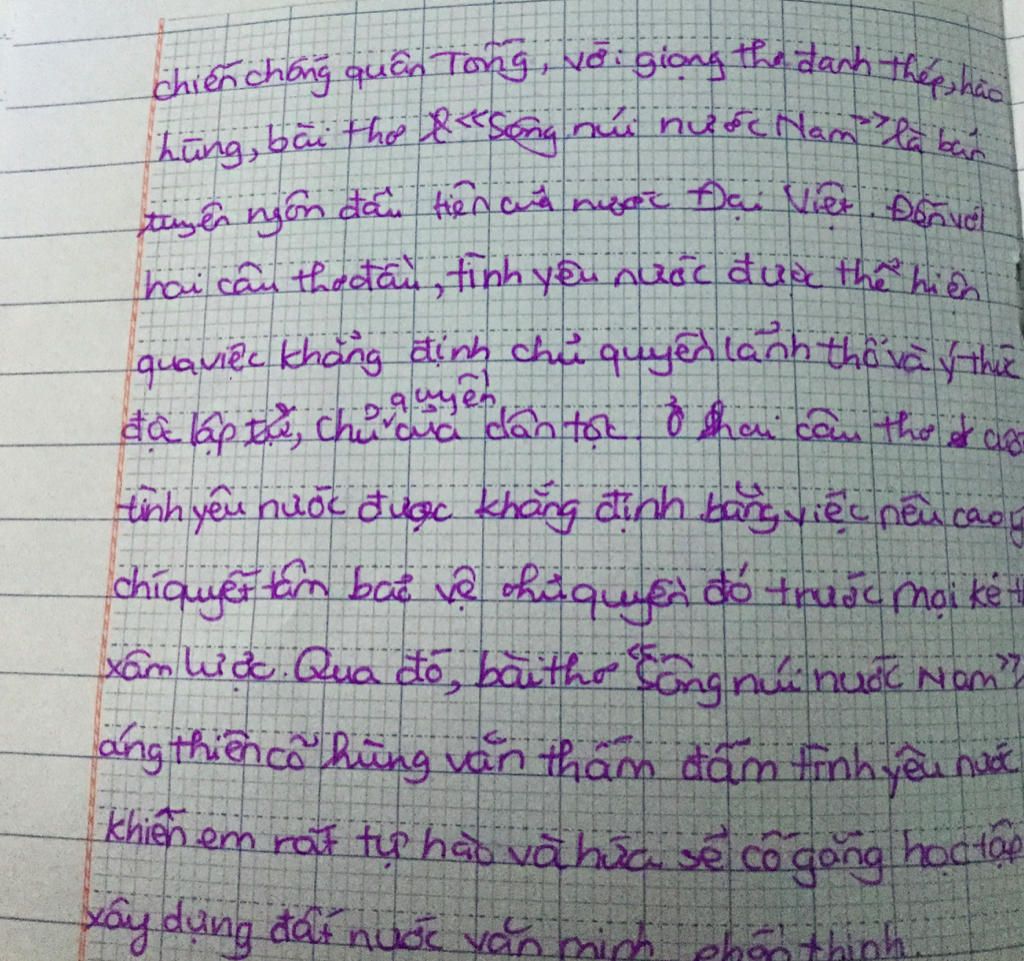 chiến chống quân Tống, với giọng thơ đanh thép, hào
hùng, bài thơ "Sông núi nước Nam" là bản
tuyên ngôn đầu tiên của nước Đại Việt. Đến với
hai câu thơ đầu, tình yêu nước được thể hiện
qua việc khẳng định chủ quyền lảnh thổ và ý thức
độc lập tự, chủ quyền của dân tộc. Ở hai câu thơ
tình yêu nước được khẳng định bằng việc nêu cao ý
chí quyết tâm bảo vệ chủ quyền đó trước mọi kẻ t
xâm lược. Qua đó, bài thơ "Sông núi nước Nam"
áng thiên cổ hùng văn thấm đẫm tình yêu nước
khiến em rất tự hào và hứa sẽ cố gắng học tập
xây dựng đất nước văn minh phồn thịnh.